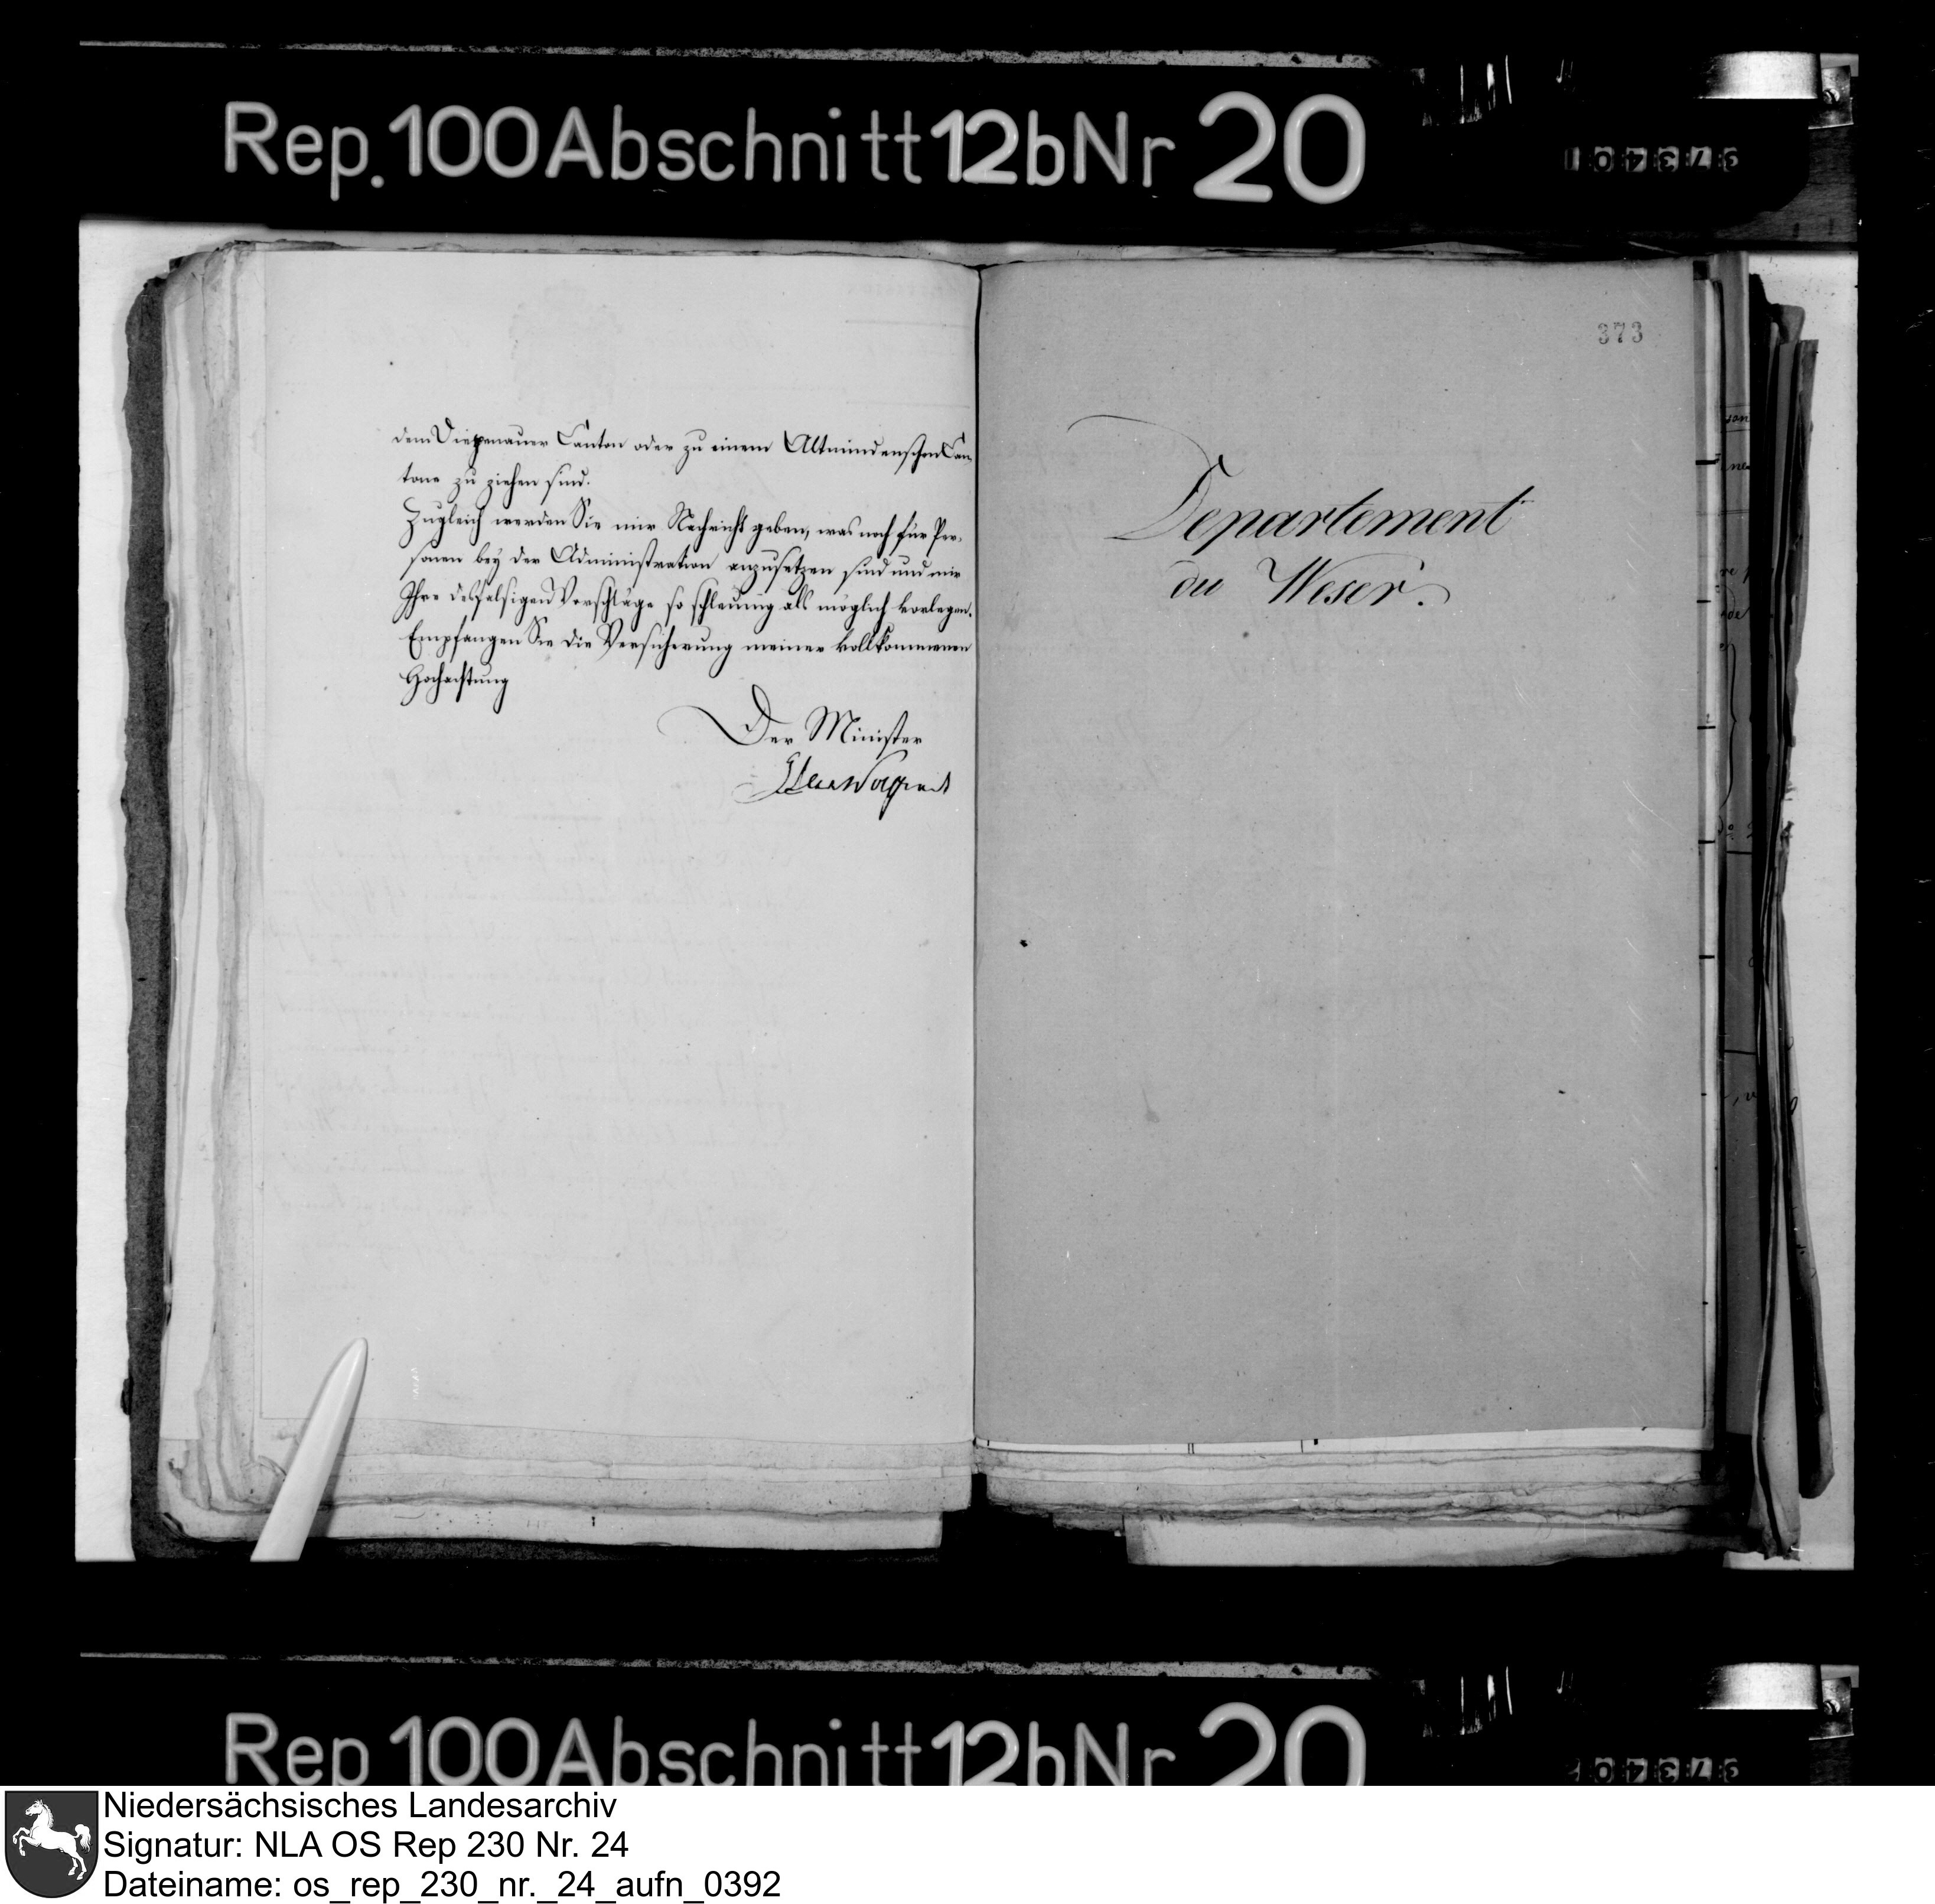 Rep. 100 Abschnitt 12b Nr 20
dem Diepenauer Canton oder zu einem Altmindenschen Can-
tone zu ziehen sind.
Zugleich werden Sie mir Nachricht geben, was noch für Per-
sonen bey der Administration anzusetzen sind und mir
Ihre desfalsigen Vorschläge so schleunig als möglich vorlegen.
Empfangen Sie die Versicherung meiner vollkommenen
Hochachtung
Der Minister
373
Departement
du Weser.
Rep 100 Abschnitt 12b Nr 20
Niedersächsisches Landesarchiv
Signatur: NLA OS Rep 230 Nr. 24
Dateiname: os_rep_230_nr._24_aufn_0392